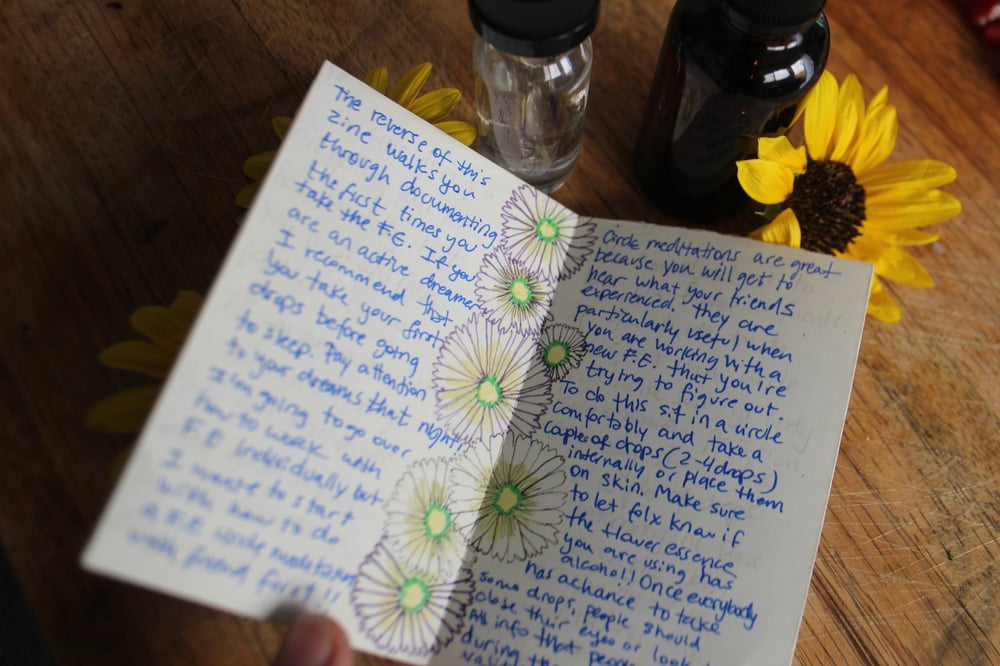 The reverse of this
zine walks you
through documenting
the first times you
take the F.E. If you
are an active dreamer
I recommend that
you take your first
drops before going
to sleep. Pay attention
to your dreams that night!
I'm going to go over
how to work with
F.E individually but
I want to start
with how to do
a F.E. circle meditation
with friend first!!
Circle meditations are great
because you will get to
hear what your friends
experienced. They are
particularly useful when
you are working with a
new F.E. that you're
trying to figure out.
To do this sit in a circle
comfortably and take a
couple of drops (2-4 drops)
internally or place them
on skin. Make sure
to let folx know if
the flower essence
you are using has
alcohol!! Once everybody
has a chance to take
some drops, people should
close their eyes or look
All info that people
during the